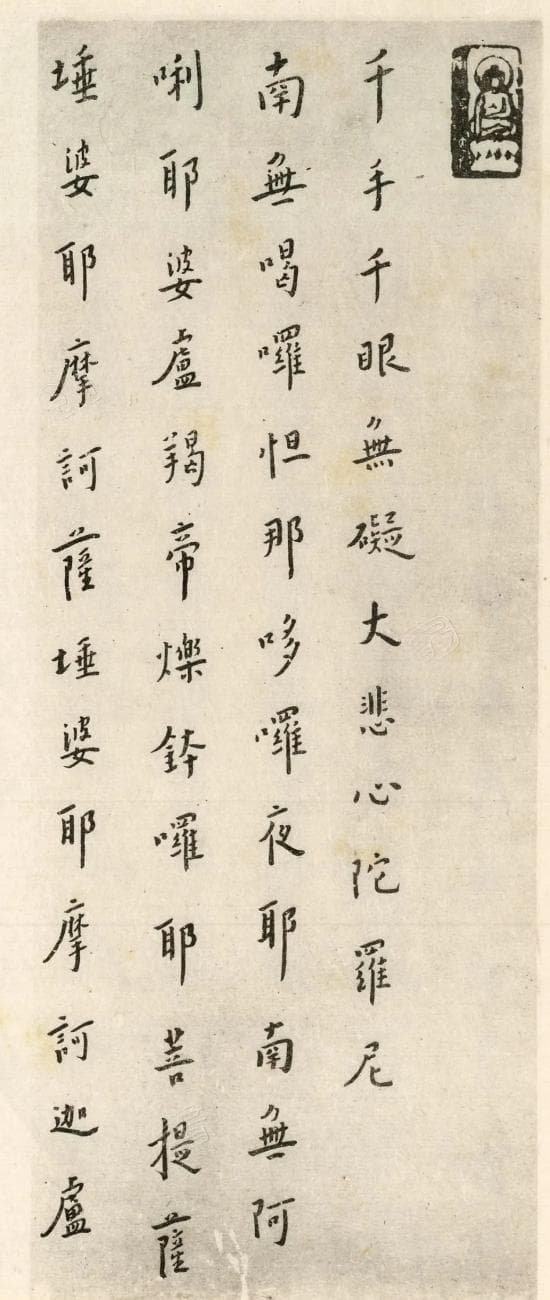 千手千眼無礙大悲心陀羅尼
南無喝囉怛那哆囉夜耶南無阿
唎耶婆盧羯帝爍鉢囉耶菩提薩
埵婆耶摩訶薩埵婆耶摩訶迦盧